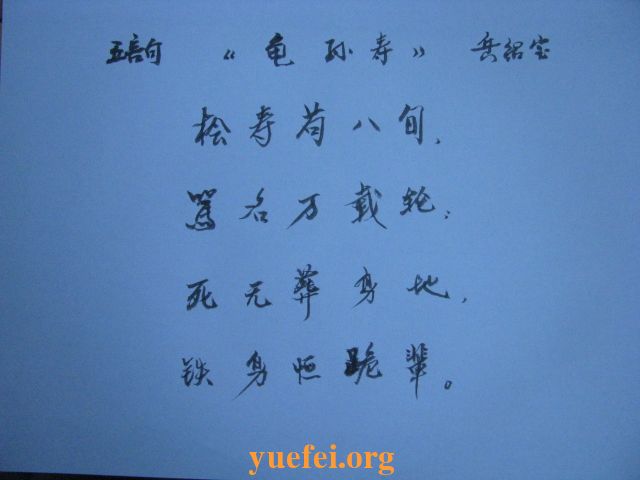 五言句 《龟孙寿》 岳绍宝
桧寿苟八旬,
骂名万载轮;
死无葬身地,
铁身恒跪辈。
yuefei.org